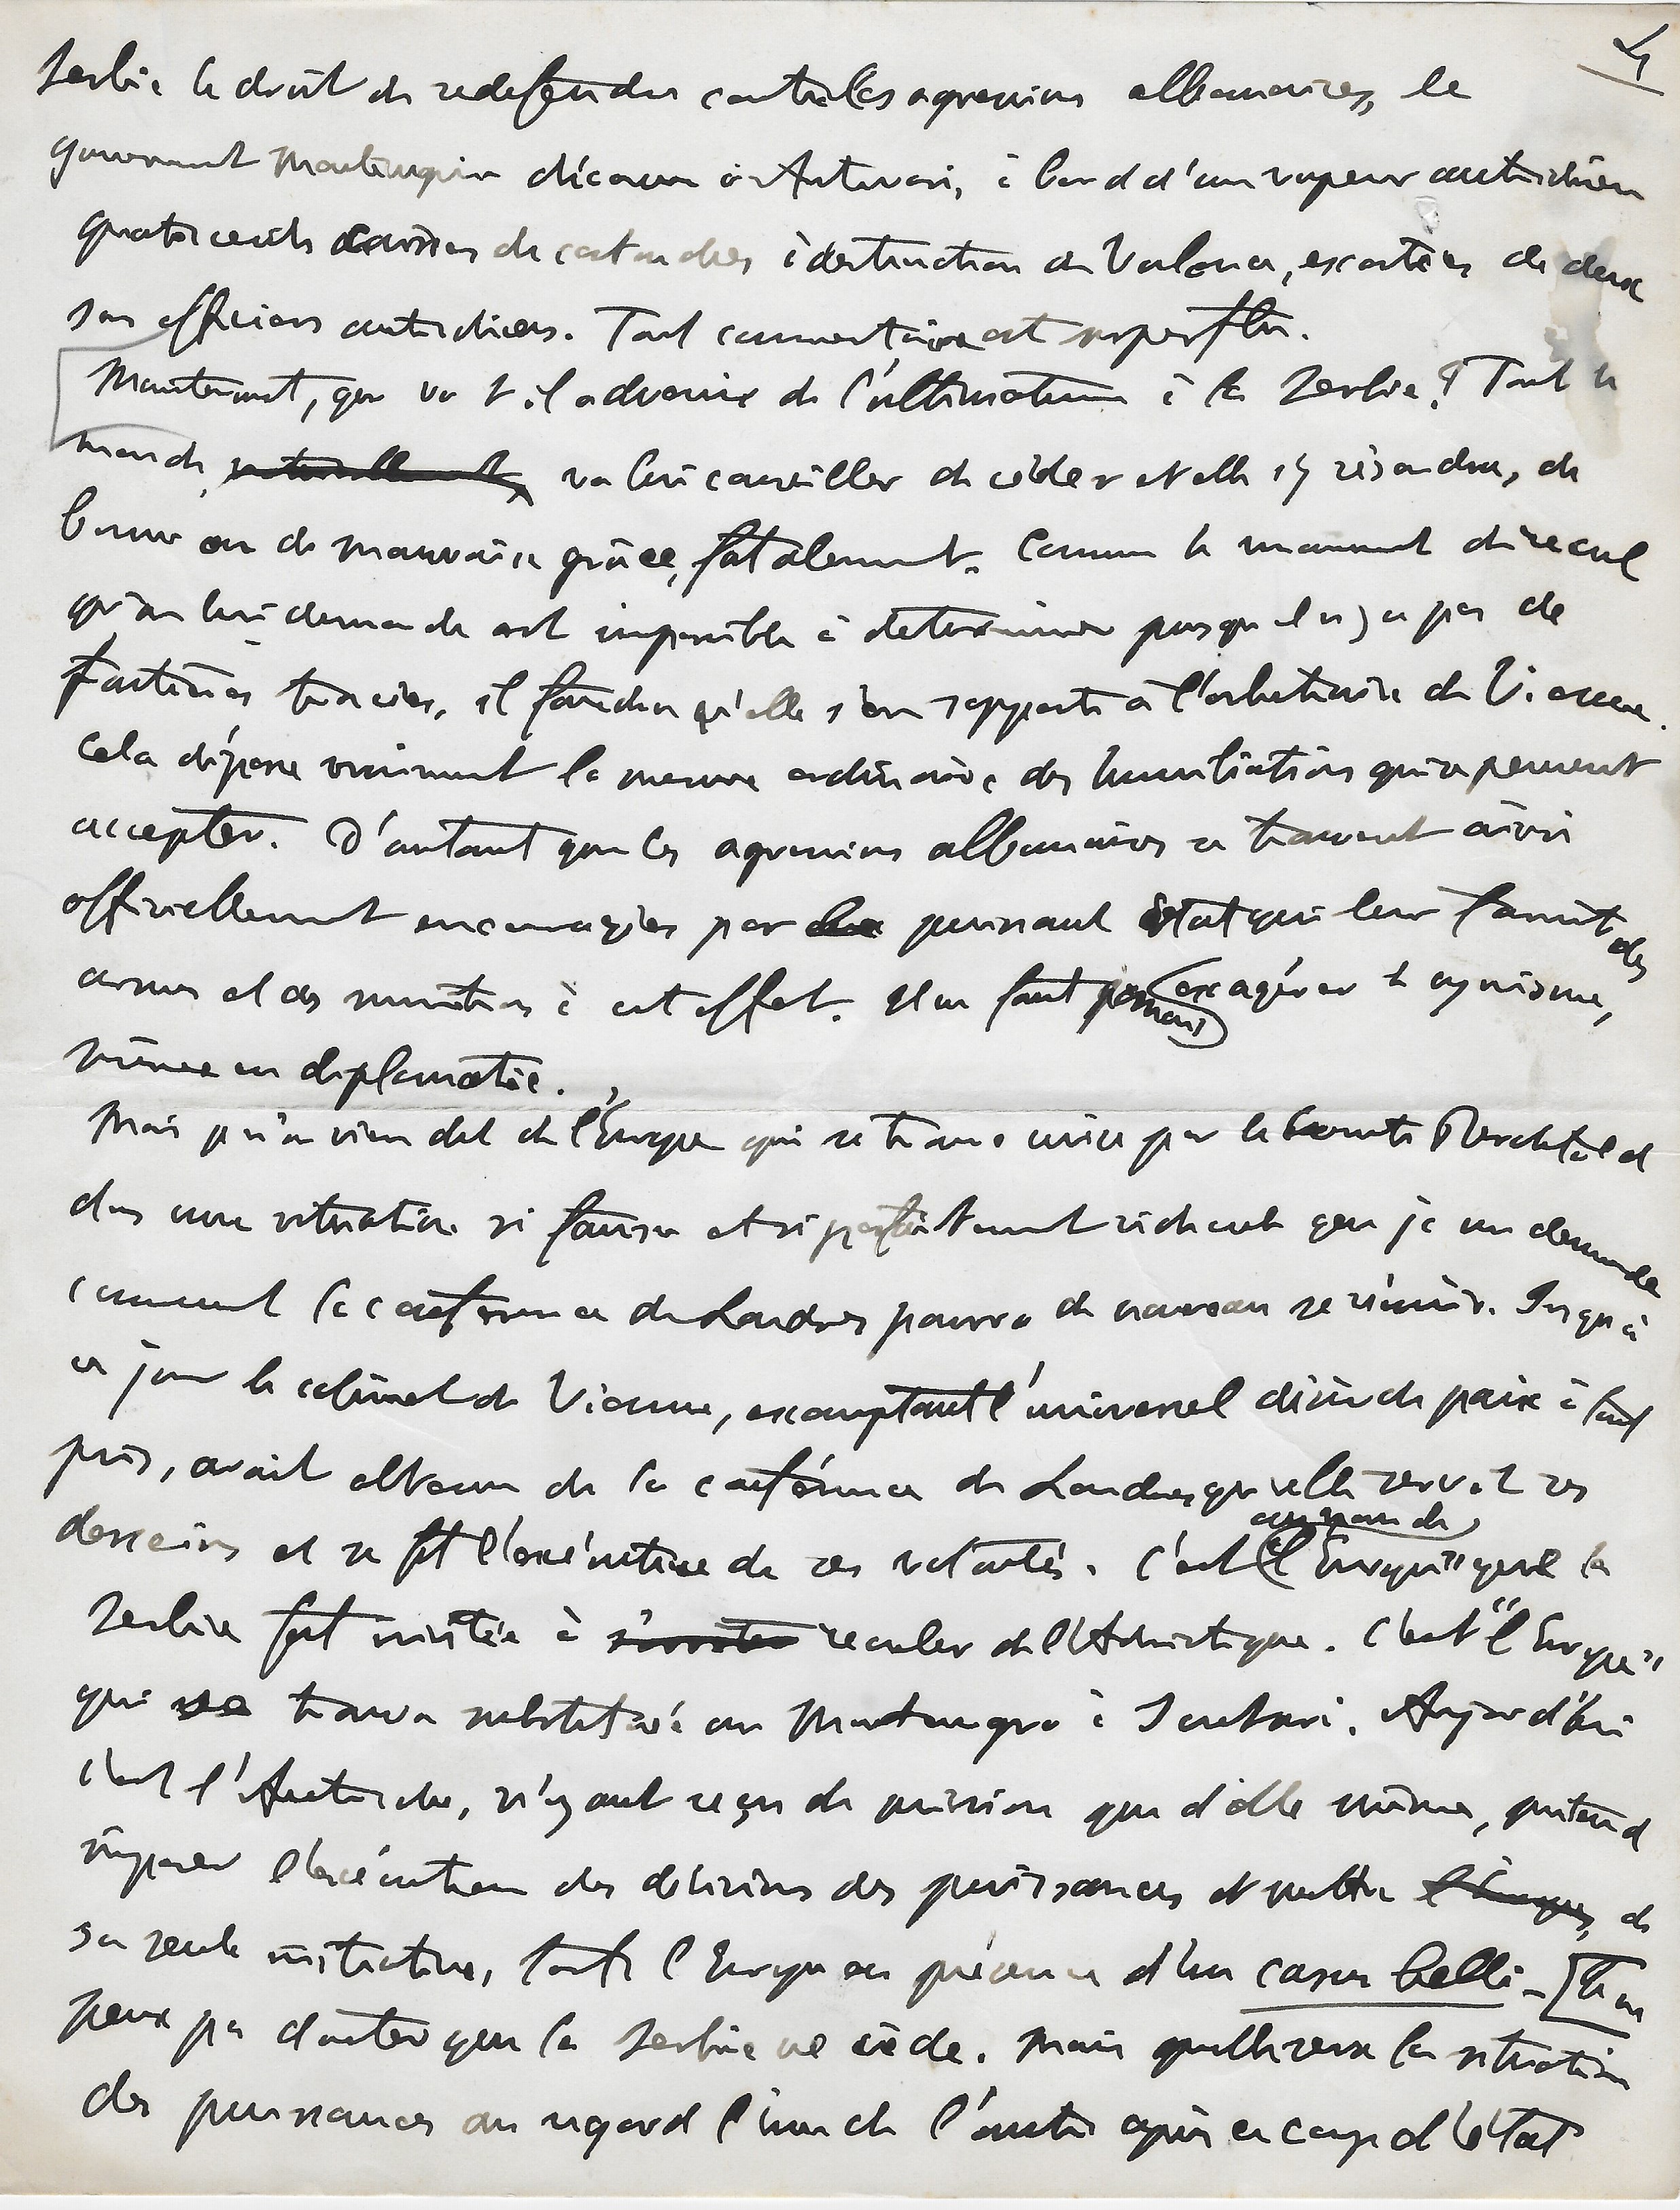 4
Serbie le droit de se défendre contre les agressions albanaises, le
gouvernement Monténégrin découvre à Antivari, à bord d'un vapeur autrichien
quatorze cents caisses de cartouches à destination de Valona, escortées de deux
sous officiers autrichiens. Tout commentaire est superflu.
Maintenant, que va t-il advenir de l'ultimatum à la Serbie? Tout le
monde, naturellement, va lui conseiller de céder et elle s'y résoudra, de
bonne ou de mauvaise grâce, fatalement. Comme le mouvement de recul
qu'on lui demande est impossible à déterminer puisqu'il n'y a pas de
frontières tracées, il faudra qu'elle s'en rapporte à l'arbitraire de Vienne.
Cela dépasse vraiment la mesure ordinaire des humiliations qui se peuvent
accepter. D'autant que les agressions albanaises se trouvent ainsi
officiellement encouragées par puissant état qui leur fournit des
armes et des munitions à cet effet. Il ne faut jamais exagérer le cynisme,
même en diplomatie.
Mais qu'en vien dût de l'Europe qui se trouve mise par le Comte Berchtold
dans une situation si fausse et si parfaitement ridicule que je me demande
comment la conférence de Londres pourra de nouveau se réunir. Jusqu'à
ce jour le cabinet de Vienne, escomptant l'universel désir de paix à tout
prix, avait obtenu de la conférence de Londres qu'elle servit ses
desseins et se fît l'exécutrice de ses volontés. C'est au nom de
"l'Europe" que la
Serbie fut invitée à s'arrêter reculer de l'Adriatique. C'est "l'Europe"
qui se trouva substituée au Monténégro à Scutari. Aujourd'hui
c'est l'Autriche, n'ayant reçu de mission que d'elle même, prétend
imposer l'exécution des décisions des puissances et mettre l'Europe, de
sa seule initiative, toute l'Europe en présence d'un casus belli. - [Je ne
peux pas douter que la Serbie ne cède. Mais quelle sera la situation
des puissances au regard l'une de l'autre après ce coup d'état